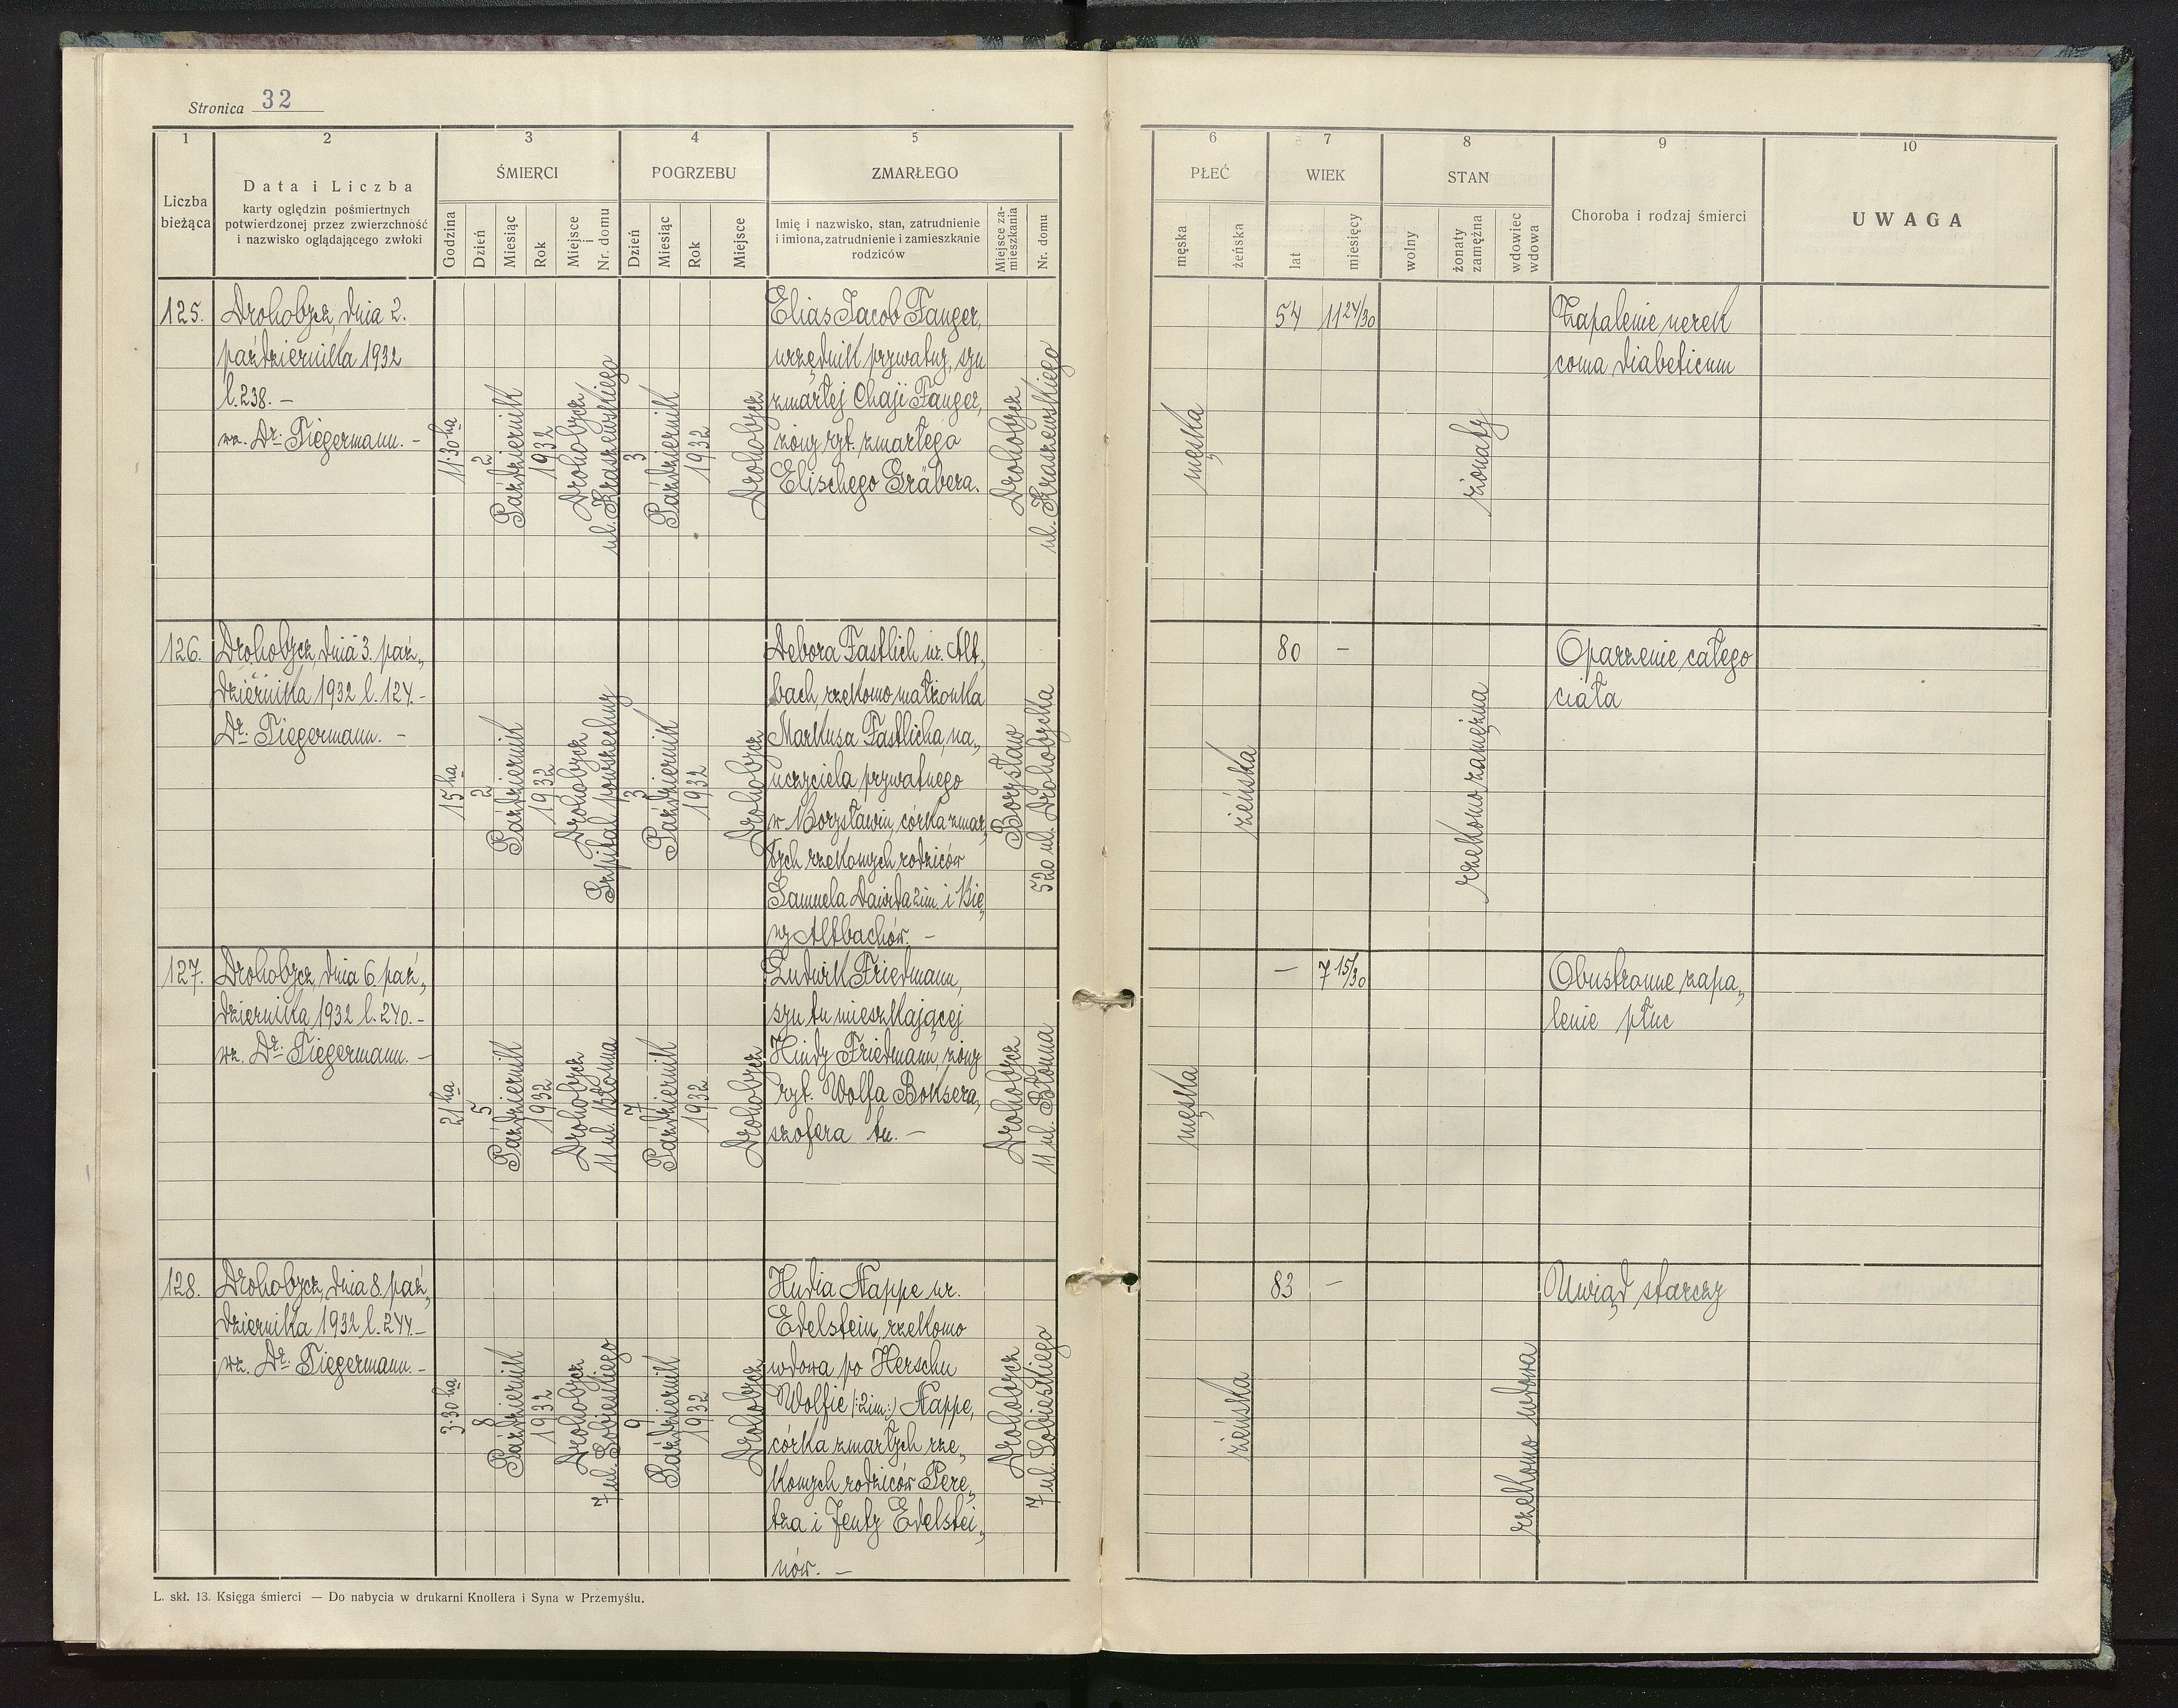 Stronica 32
1 2 3 4 5 6 7 8 9 10
Liczba bieżąca
Data i Liczba
karty oględzin pośmiertnych
potwierdzonej przez zwierzchność
i nazwisko oglądającego zwłoki
ŚMIERCI
Godzina
Dzień
Miesiąc
Rok
Miejsce i Nr. domu
POGRZEBU
Dzień
Miesiąc
Rok
Miejsce
ZMARŁEGO
Imię i nazwisko, stan, zatrudnienie
i imiona, zatrudnienie i zamieszkanie
rodziców
Miejsce za-
mieszkania
Nr. domu
PŁEĆ
męska
żeńska
WIEK
lat
miesięcy
STAN
wolny
żonaty
zamężna
wdowiec
wdowa
Choroba i rodzaj śmierci
UWAGA
125.
Drohobycz, dnia 2.
października 1932
l. 238. —
wz. Dr. Tiegermann. —
11·30 ha
2
Październik
1932
Drohobycz
ul. Kraszewskiego
3
Październik
1932
Drohobycz
Elias Jacob Fanger,
urzędnik prywatny, syn
zmarłej Chaji Fanger,
żony ryt. zmarłego
Elischego Gräbera.
Drohobycz
ul. Kraszewskiego
męska
54
11 24/30
żonaty
Zapalenie nerek
coma diabeticum
126.
Drohobycz, dnia 3. paź„
dziernika 1932 l. 124. —
Dr. Tiegermann. —
15 ha
2
Październik
1932
Drohobycz
Szpital powszechny
3
Październik
1932
Drohobycz
Debora Fastlich ur. Alt„
bach, rzekomo małżonka
Markusa Fastlicha, na„
uczyciela prywatnego
w Borysławiu, córka zmar„
łych rzekomych rodziców
Samuela Dawida 2im. i Bie„
ny Altbachów. —
Borysław
520 ul. Drohobycka
żeńska
80
—
rzekomo zamężna
Oparzenie całego
ciała
127.
Drohobycz, dnia 6. paź„
dziernika 1932 l. 240. —
wz. Dr. Tiegermann. —
21 ha
5
Październik
1932
Drohobycz
11 ul. Błonna
7
Październik
1932
Drohobycz
Ludwik Friedmann,
syn tu mieszkającej
Hindy Friedmann, żony
ryt. Wolfa Boksera,
szofera tu. —
Drohobycz
11 ul. Błonna
męska
—
7 15/30
Obustronne zapa„
lenie płuc
128.
Drohobycz, dnia 8. paź„
dziernika 1932 l. 244. —
wz. Dr. Tiegermann. —
3·30 ha
8
Październik
1932
Drohobycz
7 ul. Sobieskiego
9
Październik
1932
Drohobycz
Hudia Nappe ur.
Edelstein, rzekomo
wdowa po Herschu
Wolfie /:2im:/ Nappe,
córka zmarłych rze„
komych rodziców Pere„
tza i Jenty Edelstei„
nów. —
Drohobycz
7 ul. Sobieskiego
żeńska
83
—
rzekomo wdowa
Uwiąd starczy
L. skł. 13. Księga śmierci — Do nabycia w drukarni Knollera i Syna w Przemyślu.